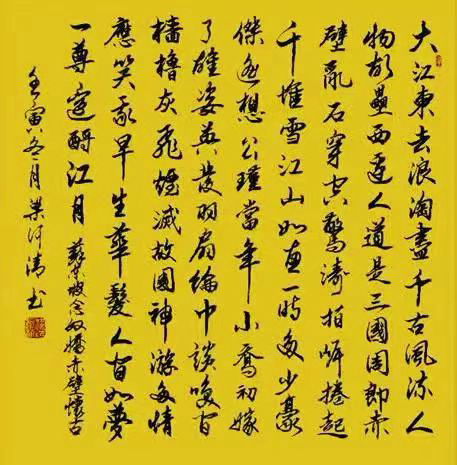 大江東去浪淘盡千古風流人
物故壘西邊人道是三國周郎赤
壁亂石穿空驚濤拍岸捲起
千堆雪江山如畫一時多少豪
傑遙想公瑾當年小喬初嫁
了雄姿英發羽扇綸巾談笑間
檣櫓灰飛煙滅故國神游多情
應笑我早生華髮人間如夢
一尊還酹江月 蘇東坡念奴嬌赤壁懷古
壬寅冬月梁書